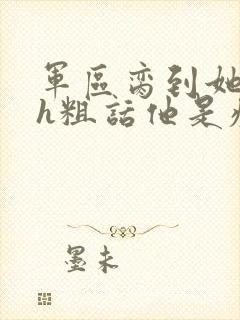 軍區高到她
h粗話他是
墨未